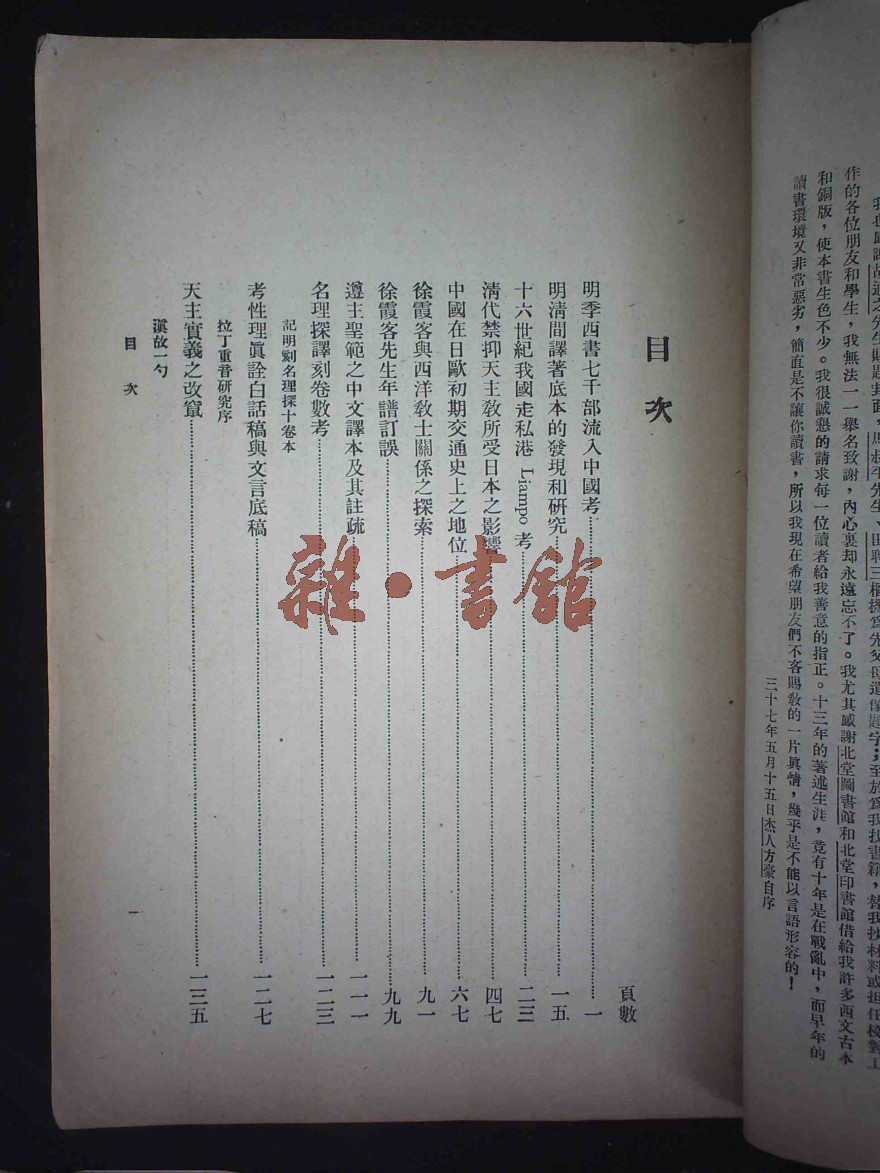 作的各位朋友和學生，我無法一一舉名致謝，內心裏却永遠忘不了。我尤其感謝北堂圖書館和北堂印書館借給我許多西文古本
和銅版，使本書生色不少。我很誠懇的請求每一位讀者給我善意的指正。十三年的著述生涯，竟有十年是在戰亂中，而早年的
讀書環境又非常惡劣，簡直是不讓你讀書，所以我現在希望朋友們不客賜敎的一片眞情，幾乎是不能以言語形容的！
三十七年五月十五日杰人方豪自序
目次
頁數
明季西書七千部流入中國考…………一
明淸間譯著底本的發現和研究…………一五
十六世紀我國走私港 Liampo 考…………二三
淸代禁抑天主敎所受日本之影響…………四七
中國在日歐初期交通史上之地位…………六七
徐霞客與西洋敎士關係之探索…………九一
徐霞客先生年譜訂誤…………九九
遵主聖範之中文譯本及其註疏…………一一一
名理探譯刻卷數考…………一二三
記明刻名理探十卷本
考性理眞詮白話稿與文言底稿…………一二七
拉丁重音研究序
天主實義之改竄…………一三五
滇故一勺
目次
一
雜·書館